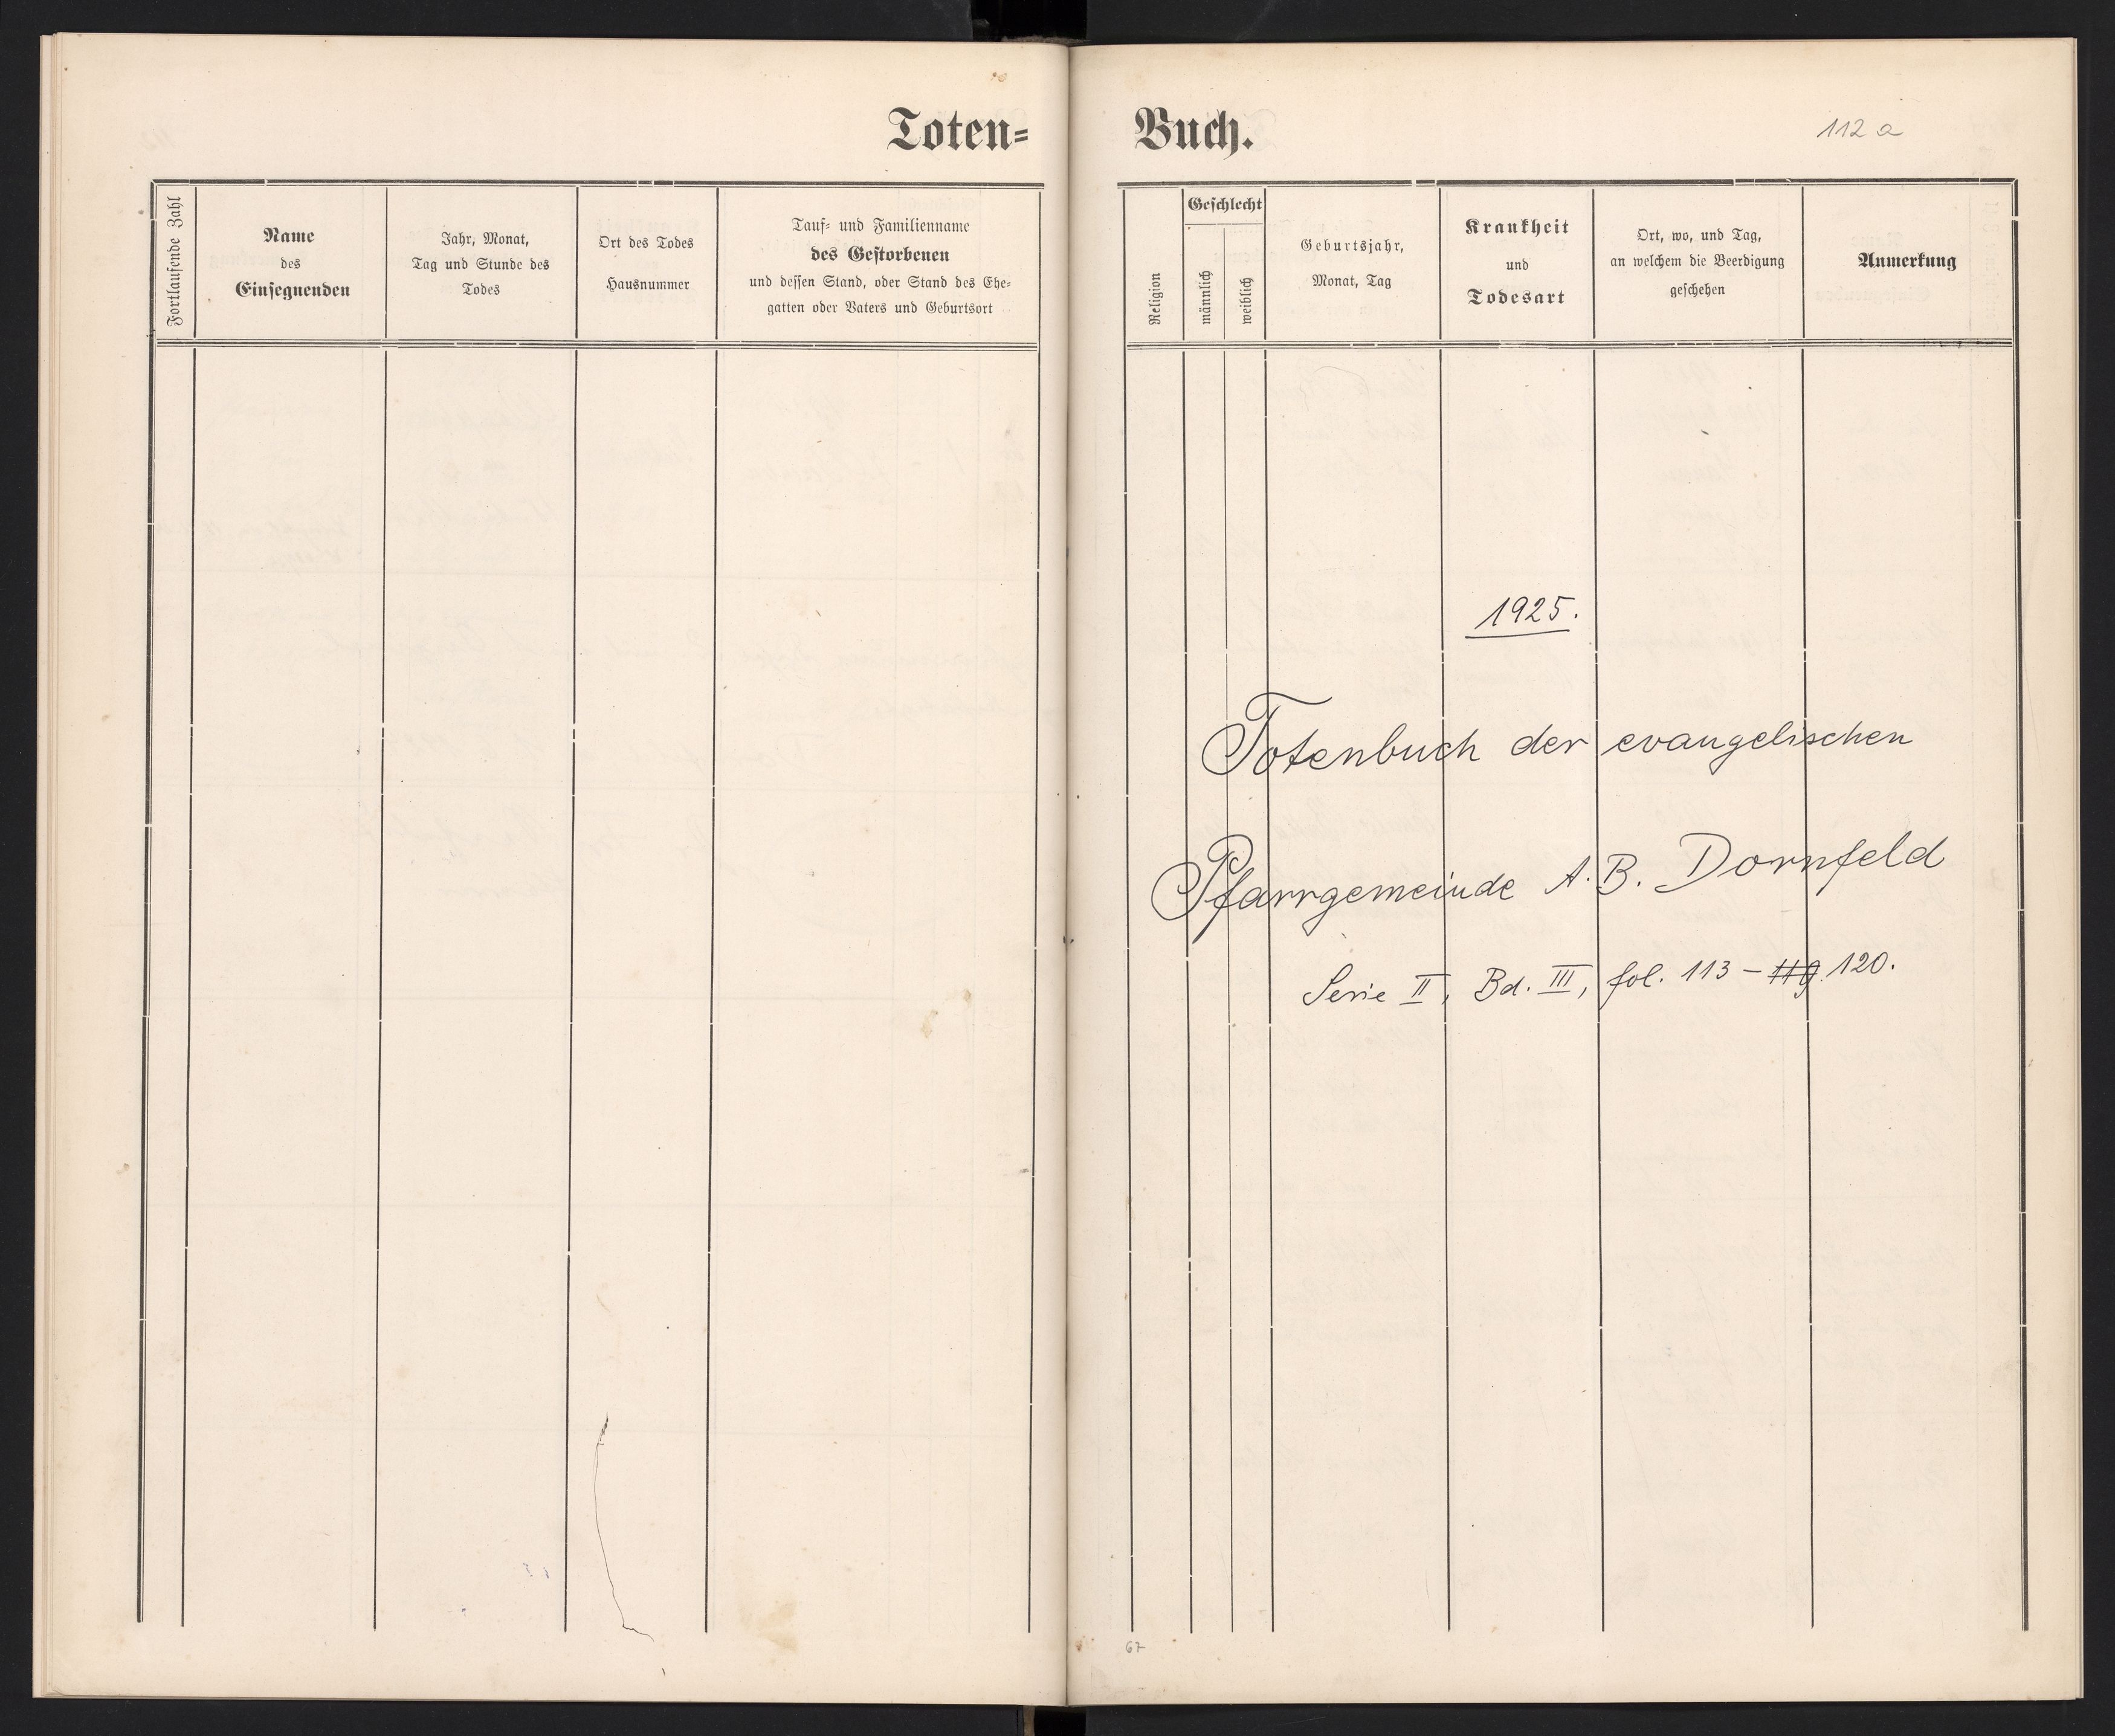 Toten=
Fortlaufende Zahl
Name
des
Einsegnenden
Jahr, Monat,
Tag und Stunde des
Todes
Ort des Todes
Hausnummer
Tauf= und Familienname
des Gestorbenen
und dessen Stand, oder Stand des Ehe=
gatten oder Vaters und Geburtsort
Buch.
112 a
Religion
Geschlecht
männlich
weiblich
Geburtsjahr,
Monat, Tag
Krankheit
und
Todesart
Ort, wo, und Tag,
an welchem die Beerdigung
geschehen
Anmerkung
1925.
Totenbuch der evangelischen
Pfarrgemeinde A. B. Dornfeld
Serie II, Bd. III, fol. 113 – 119. 120.
67